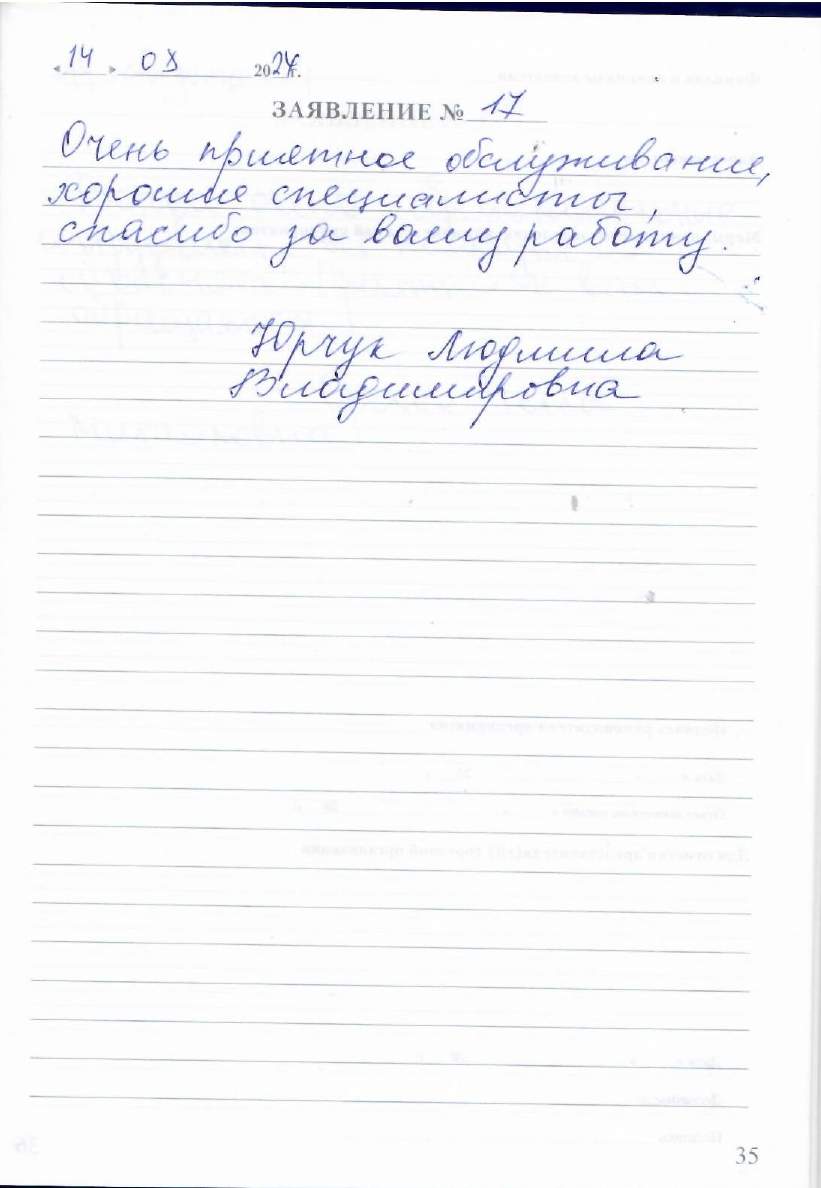 «14» 08 2024г.
ЗАЯВЛЕНИЕ № 17
Очень приятное обслуживание,
хорошие специалисты,
спасибо за вашу работу.
Юрчук Людмила
Владимировна
35